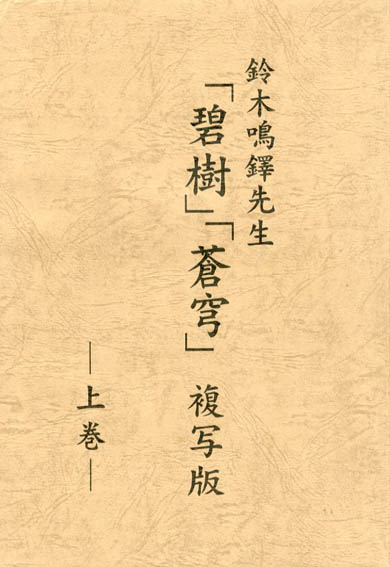 鈴木鳴鐸先生
「碧樹」「蒼穹」 複写版
―上巻―